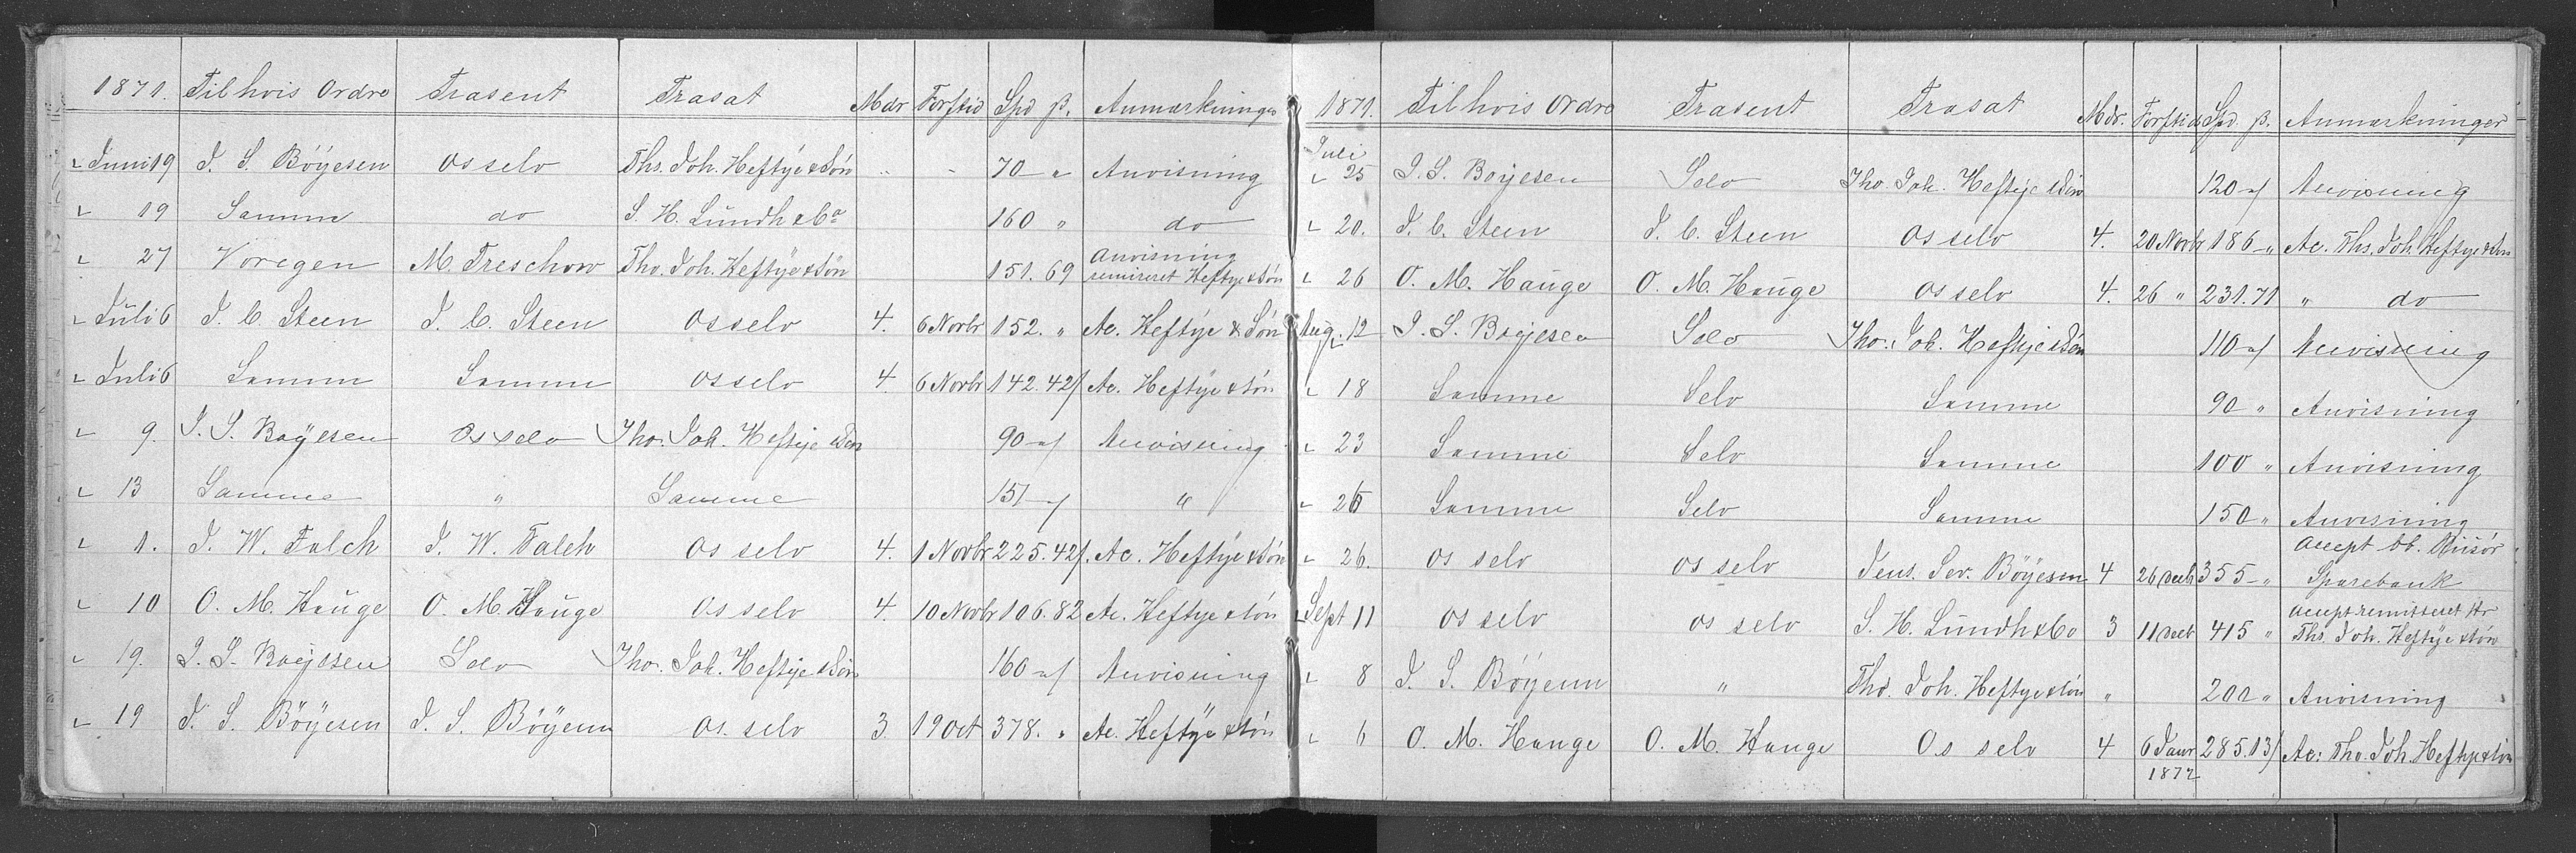 1871. Til hvis Ordre Trasent Trasat Mdr Forftid Spd β. Anmærkninger
" Juni 19 J. S. Böÿesen os selv Ths. Joh. Heftÿe & Søn " " 70 " Anvisning
" 19 Samme do S. H. Lundh & Co 160 " do
" 27 Voregen M. Treschow Tho. Joh. Heftÿe & Søn 151. 69 Anvisning remireret Heftye & Søn
" Juli 6 J. C. Steen J. C. Steen os selv 4. 6 Novbr 152. " Ac. Heftÿe & Søn
" Juli 6 Samme Samme os selv 4. 6 Novbr 142. 42/ Ac. Heftÿe & Søn
" 9. J. S. Boÿesen Os selv Tho. Joh. Heftije & Søn 90 -"/ Anvisning
" 13 Sammes " Samme 151 -"/ "
" 1. J. W. Falch J. W. Falch os selv 4. 1 Novbr 225. 42/. Ac. Heftÿe & Søn
" 10 O. M. Hauge O. M. Hauge os selv 4. 10 Novbr 106. 82 Ac. Heftye & Søn
" 19. J. S. Boijesen Selv Tho. Joh. Heftije & Søn 160 -"/ Anvisning
" 19 J. S. Böÿesen J. S. Böÿesen os. selv 3. 19 Oct 378. " Ac. Heftÿe & Søn
1871. Til hvis Ordre Trasent Trasat Mdr. Forftid Spd. β. Anmærkninger
Juli
" 25 J. S. Boijesen Selv Tho. Joh. Heftije & Søn 120 -"/ Anvisning
" 20. J. C. Steen J. C. Steen os selv 4. 20 Novbr 186 -" Ac. Ths. Joh. Heftye & Søn
" 26 O. M. Hauge O. M. Hauge os selv 4. 26 " 231. 71 " do
Aug. 12 J. S. Boijesen Selv Tho. Joh. Heftije & Søn 110 -"/ Anvisning
" 18 Samme Selv Samme 90 " Anvisning
" 23 Samme Selv Samme 100 " Anvisning
" 25 Samme Selv Samme 150 " Anvisning
" 26. os selv os selv Jens. Sev. Böÿesen 4 26 Decb 355 -" Accept bb. Riisör Sparebank
" Sept 11 os selv os selv S. H. Lundh & Co 3 11 Decb 415 " accept remitteret Hr Ths. Joh. Heftÿe & Søn
" 8 J. S. Böÿesen " Tho. Joh. Heftye & Søn " 200 " Anvisning
" 6 O. M. Hauge O. M. Hauge Os selv 4 6 Janr 1872 285. 13/ Ac: Tho. Joh. Heftye & Søn